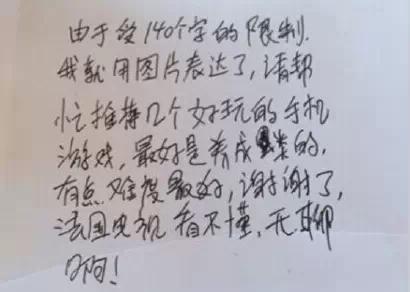 由于受140个字的限制.
我就用图片表达了,请帮
忙推荐几个好玩的手机
游戏,最好是养成类的,
有点难度最好,谢谢了,
法国电视看不懂,无聊
啊!